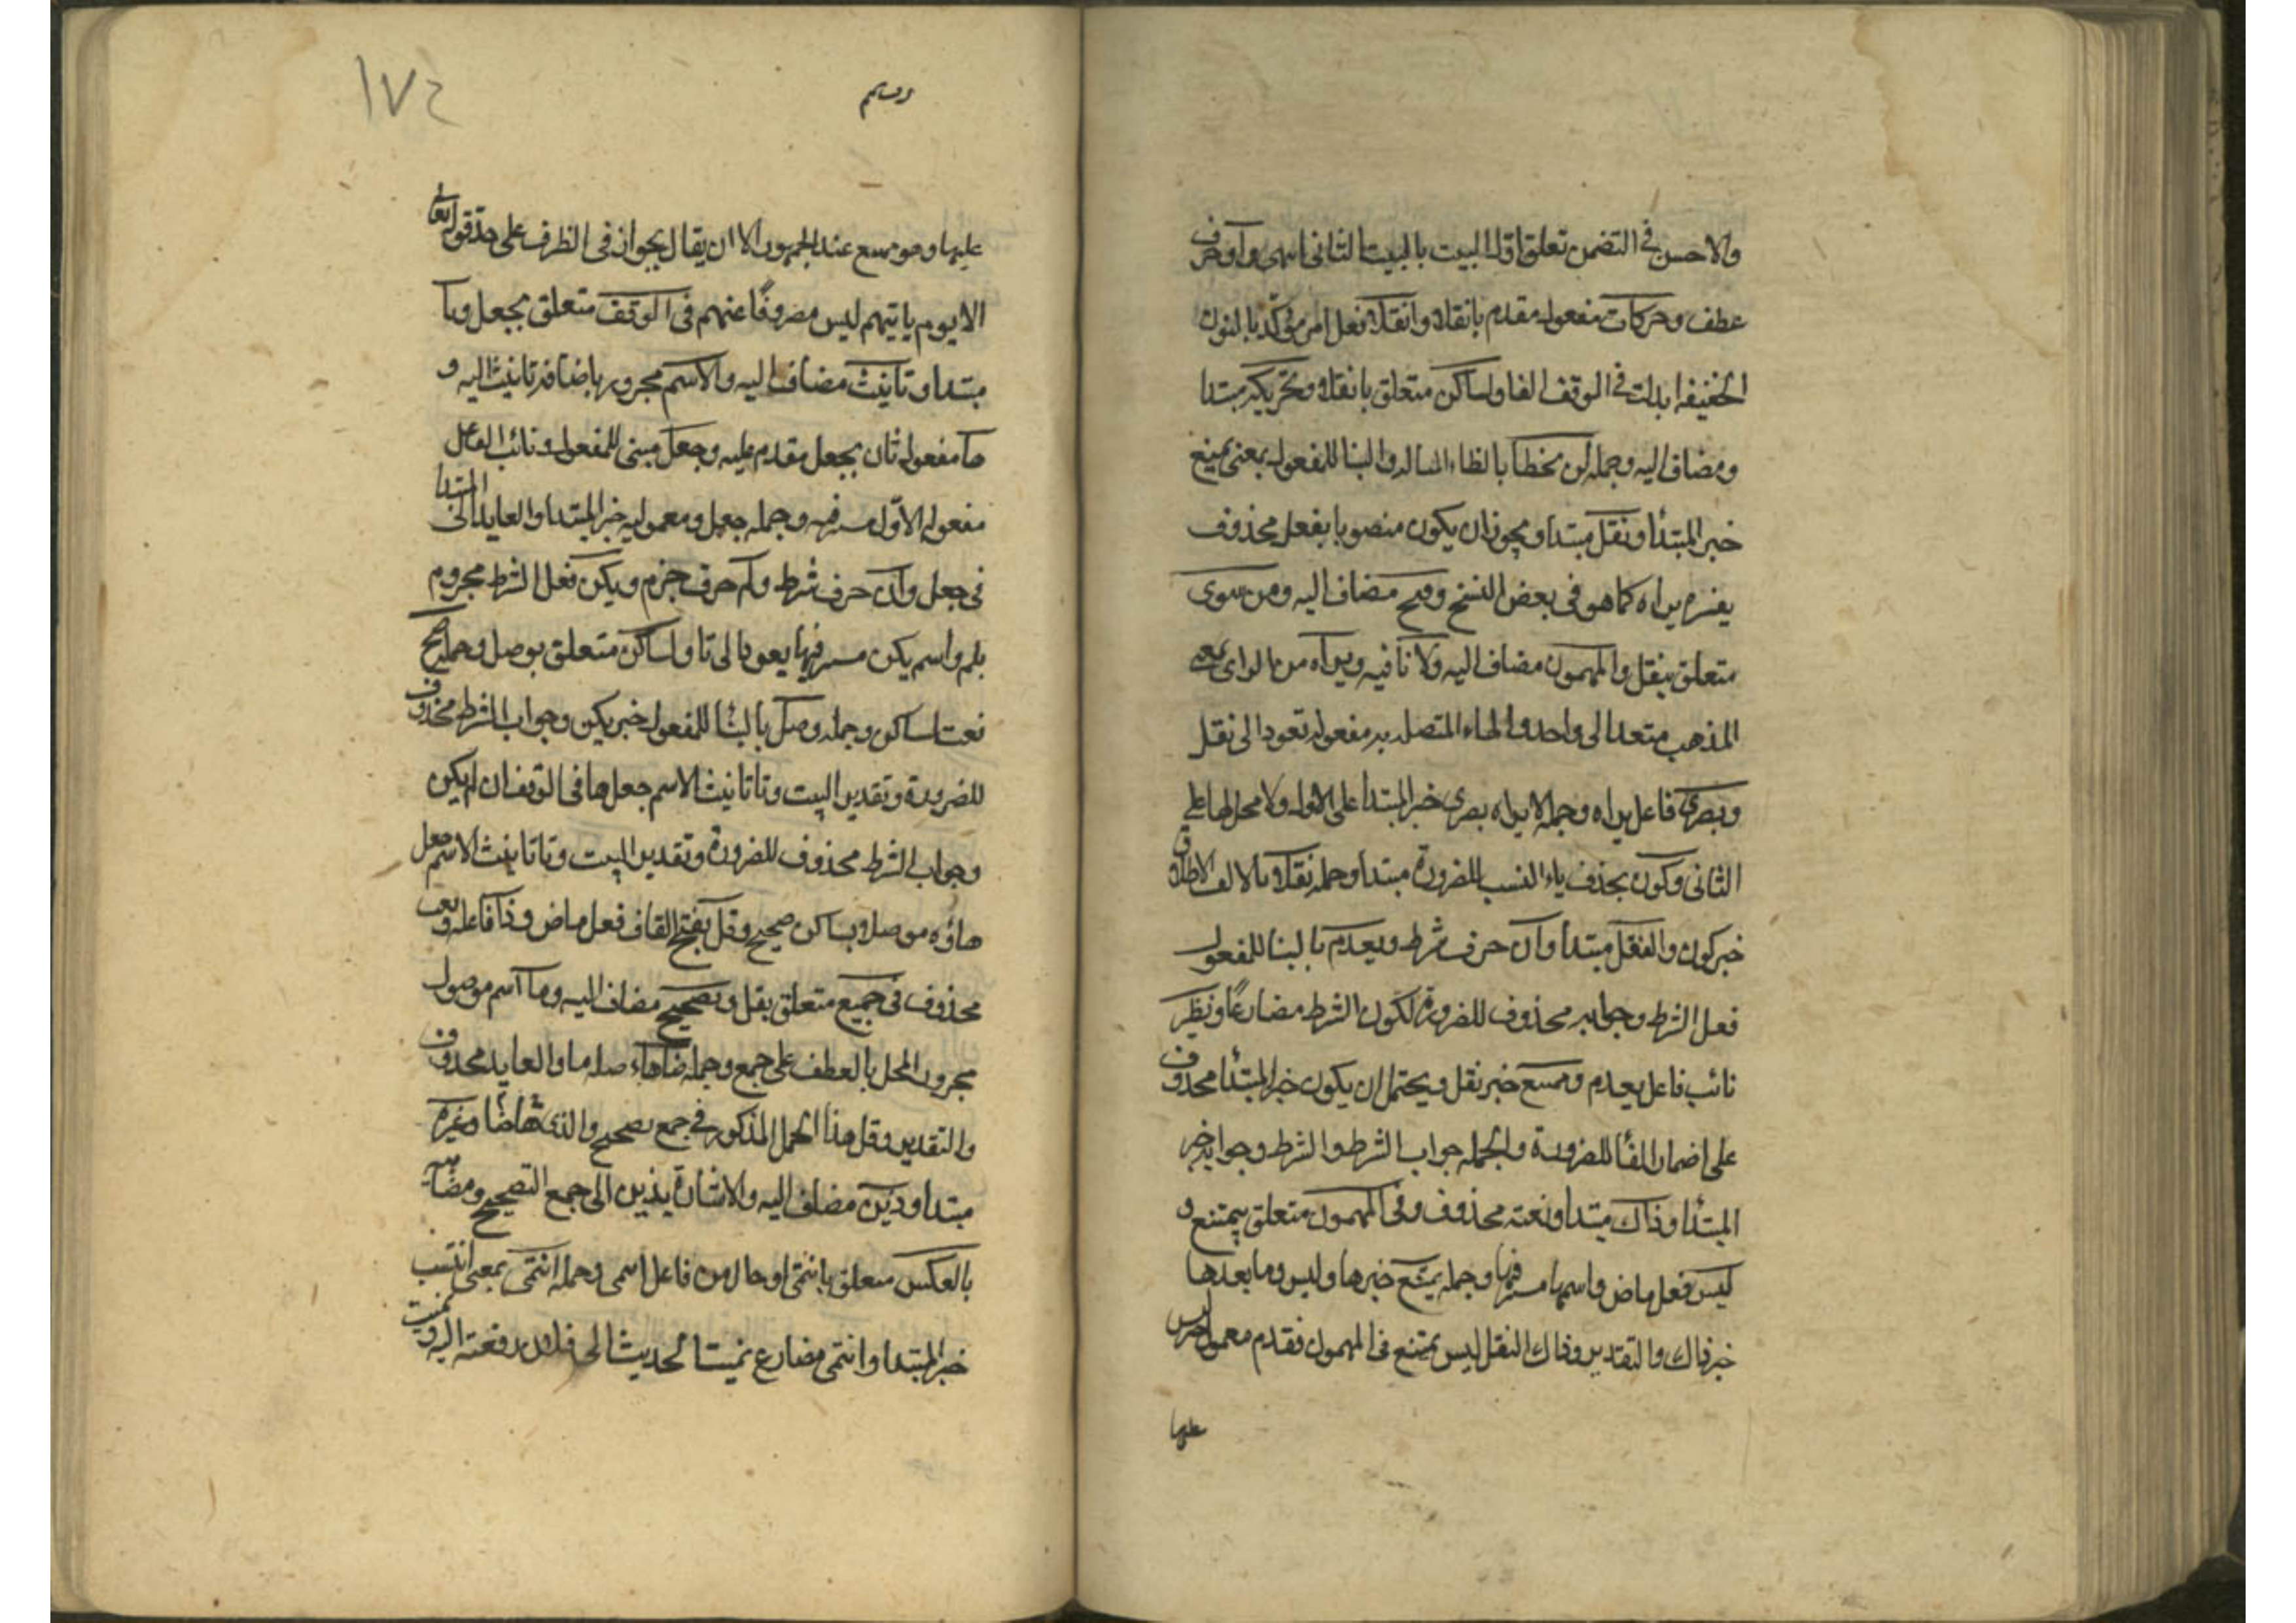 والاحسن في التضمن تعلق اول البيت بالبيت الثاني اسمى وأو حرف
عطف وحركات مفعول مقدم بانقلا وانقلا فعل امر مؤكد بالنون
الخفيفة ابدلت في الوقف الفا ولساكن متعلق بانقلا وتحريكه مبتدا
ومضاف اليه وجملة لن يخطا بالظاء المشالة والبنا للمفعول بمعنى يمنع
خبر المبتدأ ونقل مبتدا ويجوز ان يكون منصوبا بفعل محذوف
يفسره يراه كما هو في بعض النسخ وفتح مضاف اليه ومن سوى
متعلق بنقل والمهموز مضاف اليه ولا نافيه ويراه من الراى بمعنى
المذهب متعد الى واحد والهاء المتصلة به مفعوله تعود الى نقل
وبصري فاعل يراه وجملة لا يراه بصري خبر المبتدا على الاول ولا محل لها على
الثاني وكوف بحذف ياء النسب للضرورة مبتدا وجملة نقلا بالالف الاطلاق
خبر كوف والنقل مبتدا وان حرف شرط ويعدم بالبنا للمفعول
فعل الشرط وجوابه محذوف للضرورة لكون الشرط مضارعا ونظير
نائب فاعل يعدم وممتنع خبر نقل ويحتمل ان يكون خبر المبتدأ محذوف
على اضمار الفا للضرورة والجملة جواب الشرط والشرط وجوابه خبر
المبتدأ وذاك مبتدا ونعته محذوف وفى المهموز متعلق بيمتنع و
ليس فعل ماض واسمها مستتر فيها وجملة يمتنع خبرها وليس وما بعدها
خبر ذاك والتقدير وذاك النقل ليس يمتنع في المهموز فقدم معمول خبر ليس
عليها
١٧٤
عليها وهو ممتنع عند الجمهور الا ان يقال بجوازه في الظرف على حد قوله تعالى
الا يوم ياتيهم ليس مصروفا عنهم في الوقف متعلق بجعل وتا
مبتدا وتانيث مضاف اليه والاسم مجرور باضافة تانيث اليه و
ها مفعول ثان بجعل مقدم عليه وجعل مبنى للمفعول ونائب الفاعل
مفعوله الاول مستتر فيه وجملة جعل ومعموليه خبر المبتدا والعايد الى المبتدا
فى جعل وان حرف شرط ولم حرف جزم ويكن فعل الشرط مجزوم
بلم واسم يكن مستتر فيها يعود الى تا ولساكن متعلق بوصل وجملة صح
نعت لساكن وجملة وصل بالبنا للمفعول خبر يكن وجواب الشرط محذوف
للضرورة وتقدير البيت وتا تانيث الاسم جعل ها في الوقف ان لم يكن
وجواب الشرط محذوف للضرورة وتقدير البيت وتا تانيث الاسم جعل
هاؤه موصلا بساكن صحيح وقل بفتح القاف فعل ماض وذا فاعله ونعته
محذوف في جميع متعلق بقل وتصحيح مضاف اليه وما اسم موصول
مجرور المحل بالعطف على جمع وجملة ضاهاء صلة ما والعايد محذوف
والتقدير وقل هذا الجعل المذكور في جمع تصحيح والذى ضاهاه وغير
مبتدا وذين مضاف اليه والاشارة بذين الى جمع التصحيح ومضاهيه
بالعكس متعلق بانتمى او حال من فاعل اسمى وجملة انتمى بمعنى انتسب
خبر المبتدا وانتمى مضارع نميت الحديث الى فلان رفعته اليه ونميت